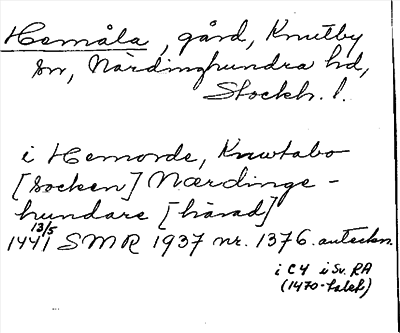 Hemåla, gård, Knutby
sn, Närdinghundra hd,
Stockh. l.
i Hemorde, Knwtabo
[socken] Nærdinge-
hundare [härad]
13/5
1441 SMR 1937 nr. 1376. anteckn.
i C4 i Sv. RA
(1470-talet)